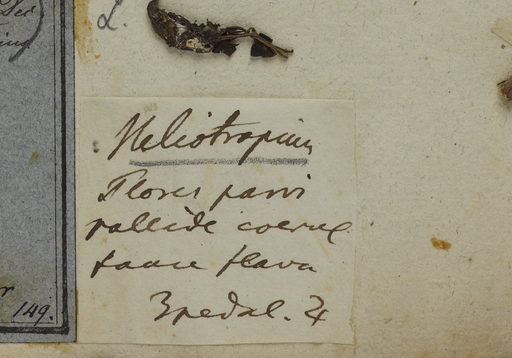 L.
Heliotropium
Flores parvi
pallide coerul
fauce flava
3pedal. ♃
149.